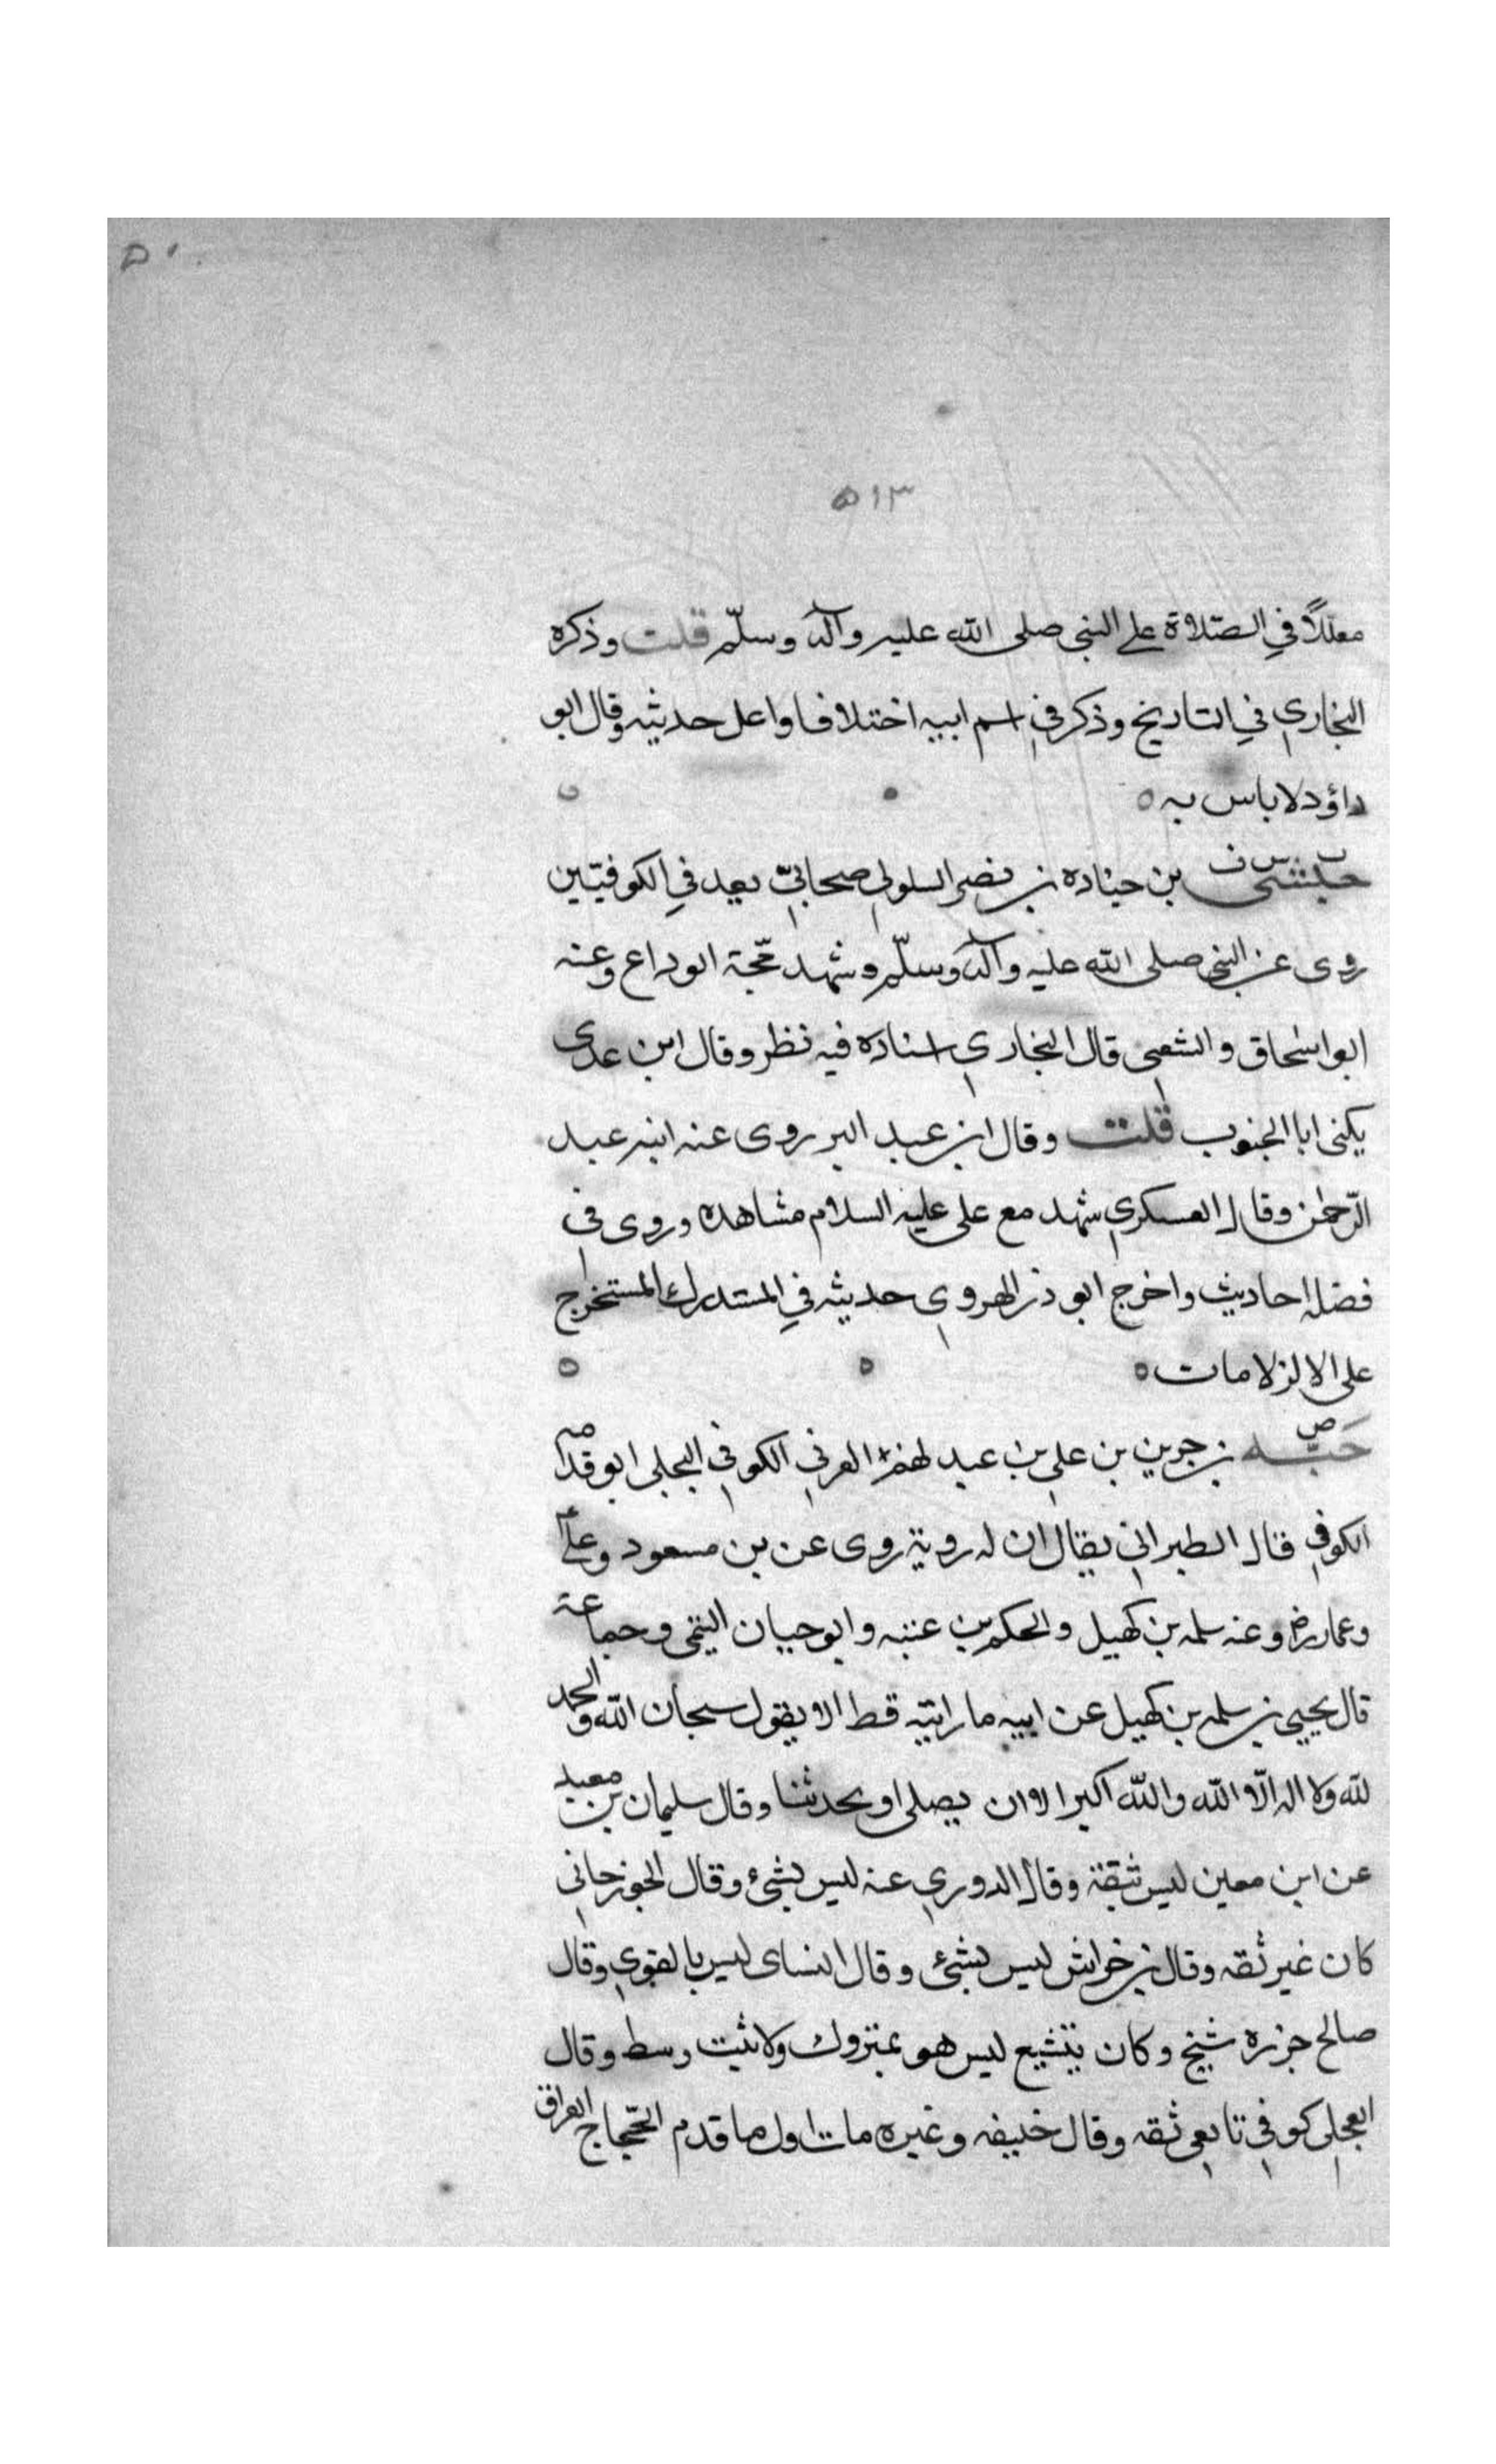 ٥٠
٥١٣
معللاً في الصّلاة على النبي صلى الله عليه وآله وسلّم قلت وذكره
البخاري في التاريخ وذكر في اسم ابيه اختلافا واعل حديثه وقال ابو
داؤد لا باس به ه
حبشى بن جناده بن نصر السلولي صحابيّ يعد في الكوفيّين
روى عن النبي صلى الله عليه وآله وسلّم وشهد حّجة الوداع وعنه
ابو اسحاق والشعبى قال البخاري اسناده فيه نظر وقال ابن عدى
يكنى ابا الجنوب قلت وقال ابن عبد البر روى عنه ابنه عبد
الرّحمٰن وقال العسكري شهد مع على عليه السلام مشاهده وروى في
فضله احاديث واخرج ابو ذر الهروي حديثه في المستدرك المستخرج
على الالزلامات ه
حَبّه بن جرين بن علي بن عبد لهم العرني الكوفي البجلى ابو قدامه
الكوفي قال الطبراني يقال ان له روية روى عن بن مسعود وعلى
وعمار رض وعنه سلمه بن كهيل والحكم بن عتبه وابو حيان التيمى وجماعة
قال يحيى بن سلمه بن كهيل عن ابيه ما رايته قط الا يقول سبحان الله والحمد
لله ولا اله الّا الله والله اكبر الا ان يصلى او يحدثنا وقال سليمان بن معبد
عن ابن معين ليس ثقة وقال الدوري عنه ليس بشئ وقال الجوزجاني
كان غير ثقه وقال بن خراش ليس بشئ وقال النساى ليس بالقوي وقال
صالح جزره شيخ وكان يتشيع ليس هو بمتروك ولا ثبت وسط وقال
العجلي كوفي تابعي ثقه وقال خليفه وغيره مات اول ما قدم الحّجاج العراق